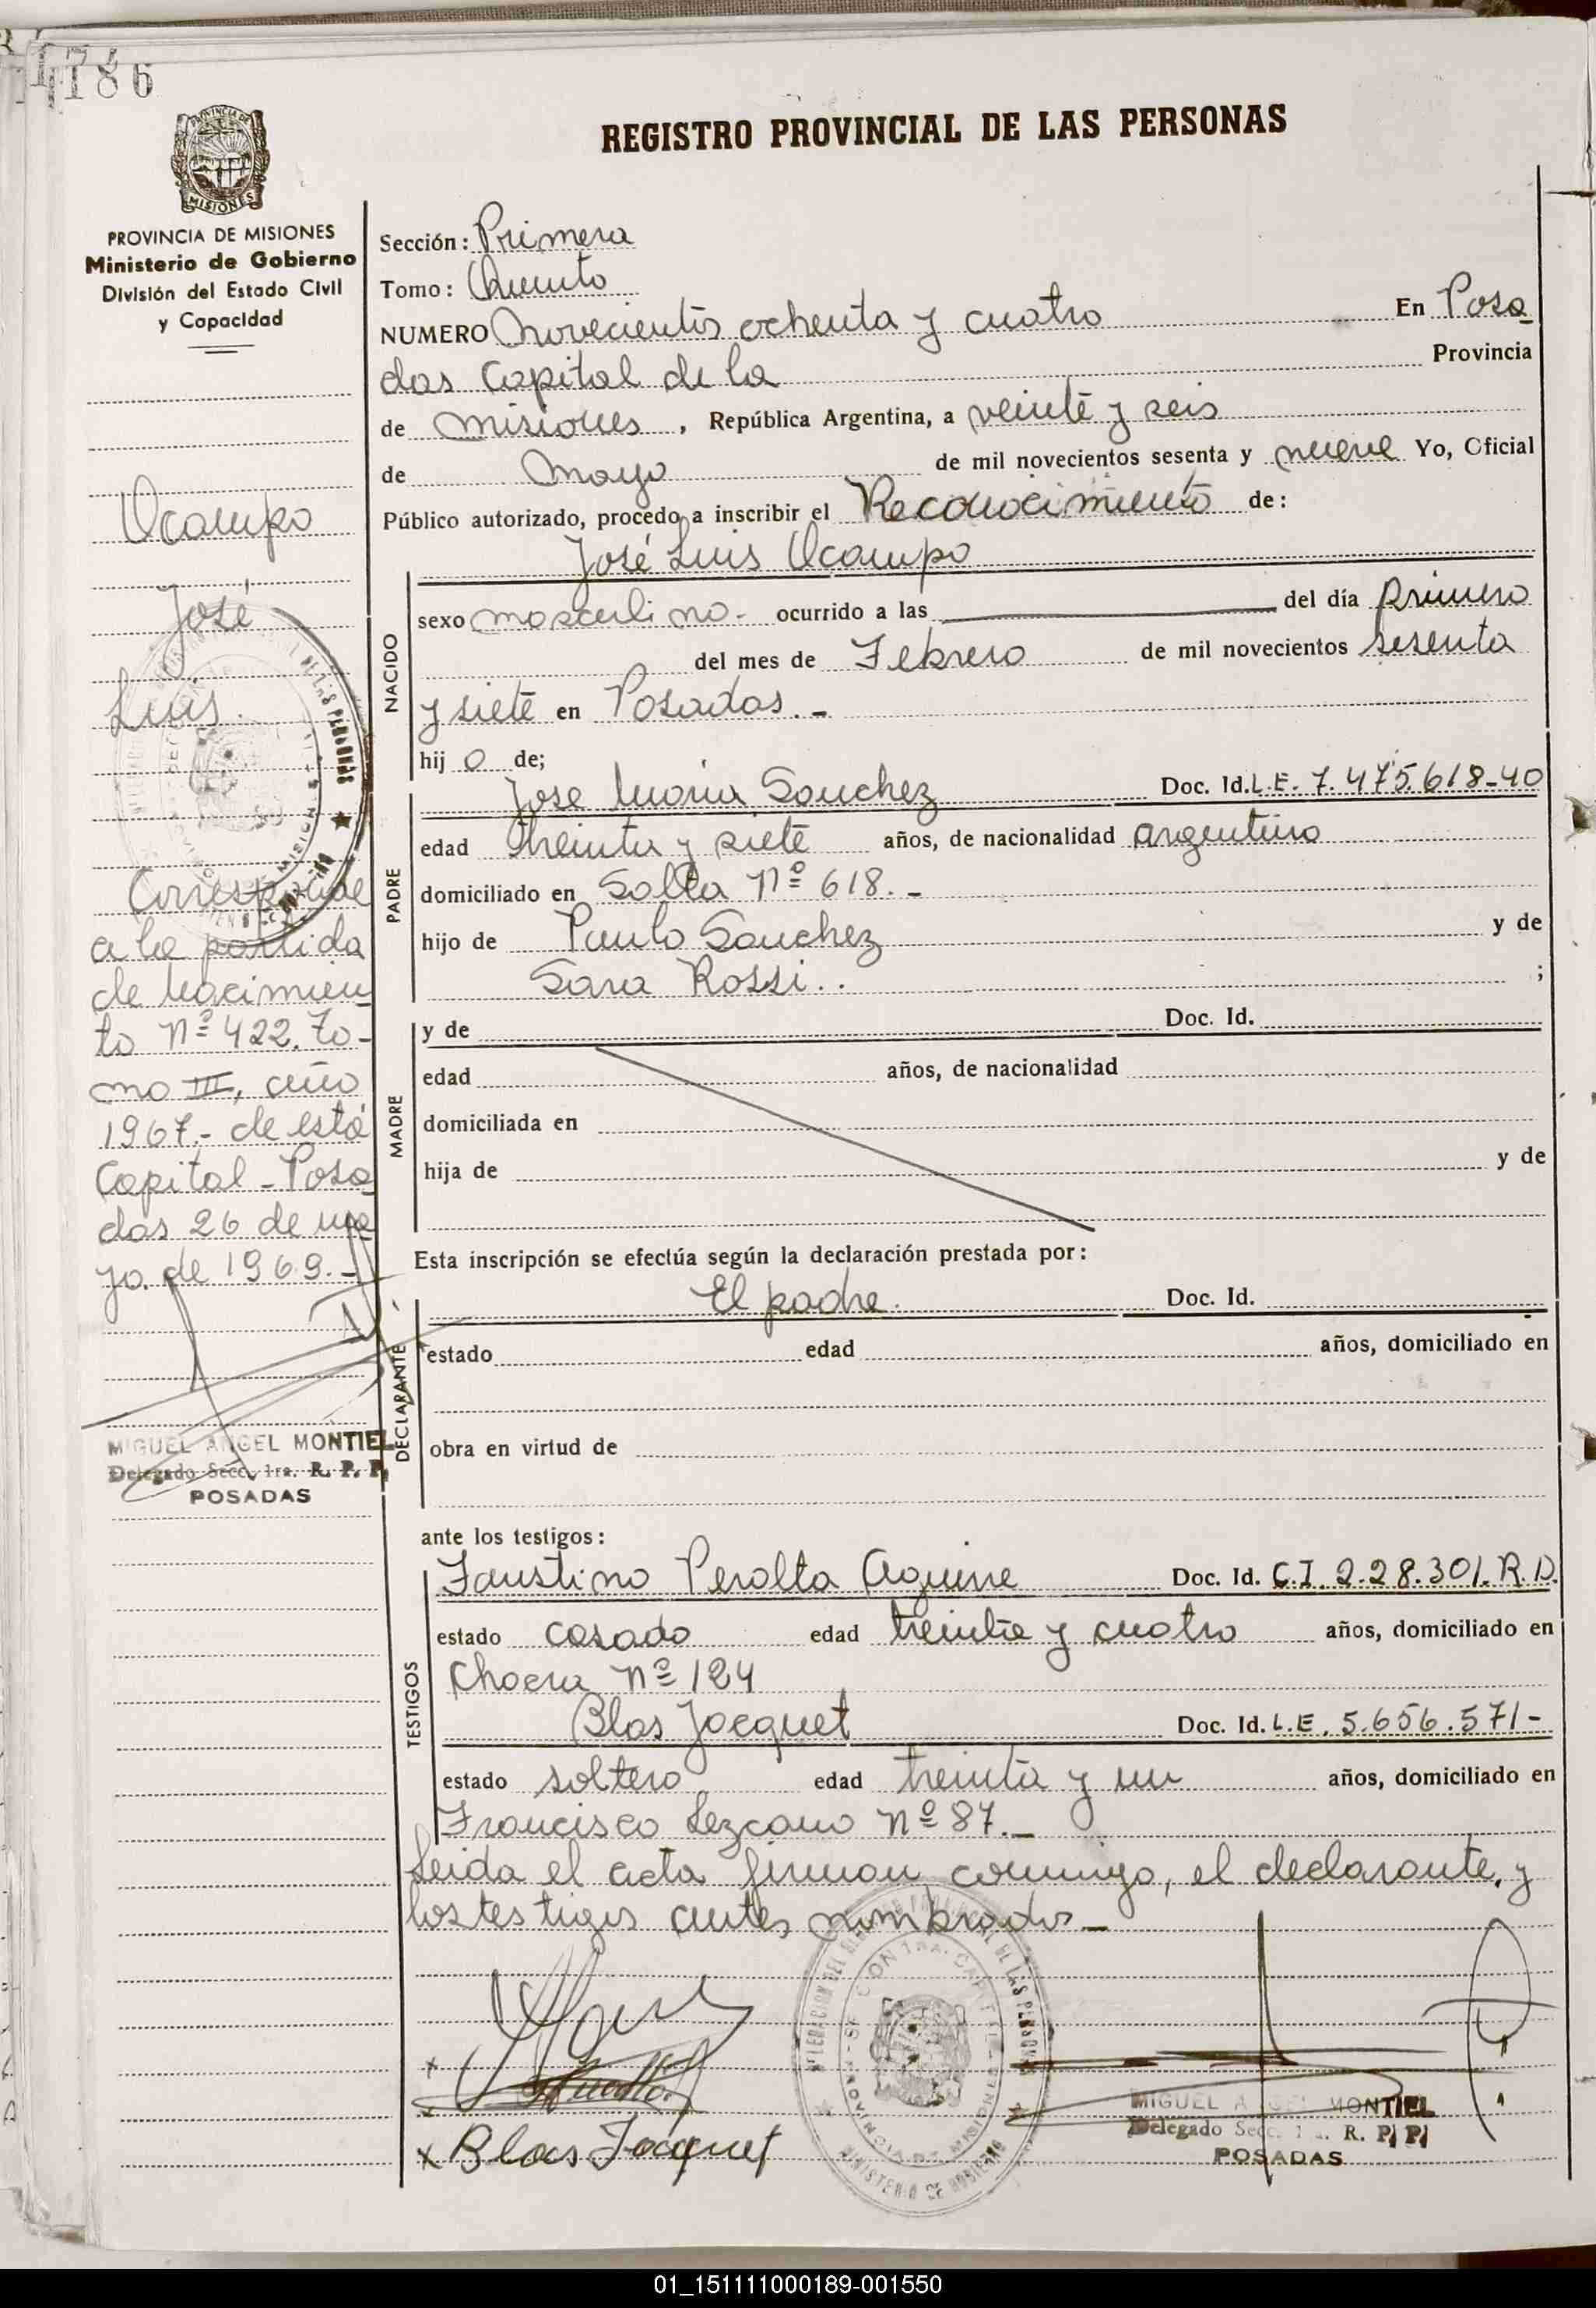 186
REGISTRO PROVINCIAL DE LAS PERSONAS
MISIONES
PROVINCIA DE MISIONES
Ministerio de Gobierno
División del Estado Civil
y Capacidad
Ocampo
José
Luis.
Corresponde
a la partida
de nacimien
to Nº 422. To-
mo III, año
1967.- de está
Capital - Posa
das 26 de ma
yo de 1969.-
MIGUEL ANGEL MONTIEL
Delegado Secc. 1ra. R. P. P.
POSADAS
Sección: Primera
Tomo: Quinto
NUMERO Novecientos ochenta y cuatro En Posa
das Capital de la Provincia
de Misiones, República Argentina, a veinte y seis
de Mayo de mil novecientos sesenta y nueve Yo, Oficial
Público autorizado, procedo a inscribir el Reconocimiento de:
José Luis Ocampo
NACIDO
sexo masculino.- ocurrido a las del día primero
del mes de Febrero de mil novecientos sesenta
y siete en Posadas.-
hijo de;
PADRE
Jose Maria Sanchez Doc. Id. L.E. 7.475.618-40
edad treinta y siete años, de nacionalidad argentino
domiciliado en Salta Nº 618.-
hijo de Paulo Sanchez y de
Sara Rossi.. ;
MADRE
y de Doc. Id.
edad años, de nacionalidad
domiciliada en
hija de y de
Esta inscripción se efectúa según la declaración prestada por:
DECLARANTE
El padre. Doc. Id.
estado edad años, domiciliado en
obra en virtud de
ante los testigos:
TESTIGOS
Faustino Peralta Aguirre Doc. Id. C.I. 228.301. R.D.
estado casado edad treinta y cuatro años, domiciliado en
Nº 124
Blas Jacquet Doc. Id. L.E. 5.656.571-
estado soltero edad treinta y un años, domiciliado en
Francisco Lezcano Nº 87.-
Leida el acta firman conmigo, el declarante, y
los testigos antes nombrados.-
x Blas Jacquet
MIGUEL ANGEL MONTIEL
Delegado Secc. 1ra. R. P. P.
POSADAS
01_151111000189-001550